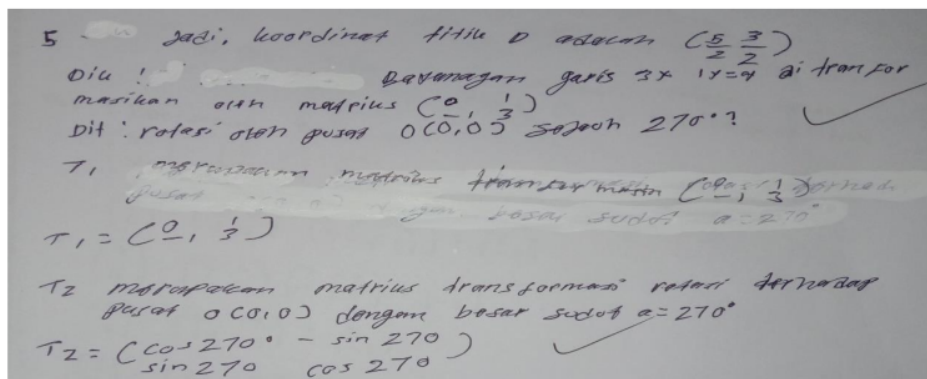 5 Jadi, koordinat titik D adalah (5/2 3/2)
Dik : Bayanagan garis 3x 1y=4 di tranfor
masikan oleh matrius (0 1
-1 3)
Dit : rotasi oleh pusat O(0,0) sejauh 270°?
T1 merupakan matrius transformasin (0 1
-1 3)
pusat dengan besar sudot a = 270°
T1 = (0 1
-1 3)
T2 merupakan matrius transformasi rotasi terhadap
pusat O(0,0) dengan besar sudot a = 270°
T2 = (cos 270° - sin 270
sin 270 cos 270)